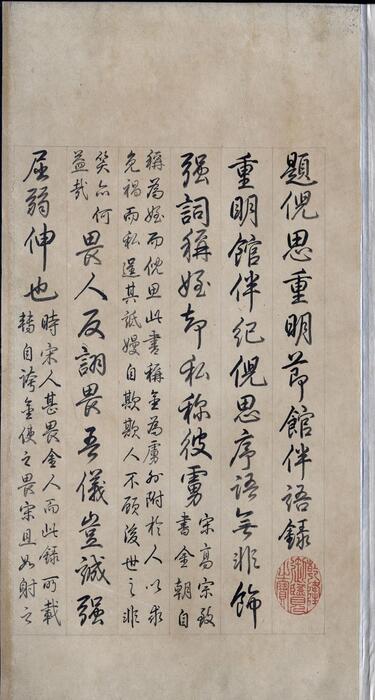 題倪思重明節館伴語錄
重明館伴紀倪思序語無非飾
强詞稱姪却私稱彼虜
宋高宗致
書金朝自
稱為姪而倪思此書稱金為虜外附於人以求
免禍而私逞其詆嫚自欺欺人不顧後世之非
笑亦何
益哉
畏人反詡畏吾儀豈誠强
屈弱伸也
時宋人甚畏金人而此錄所載
轉自誇金使之畏宋且如射之
乾隆御覽之寶